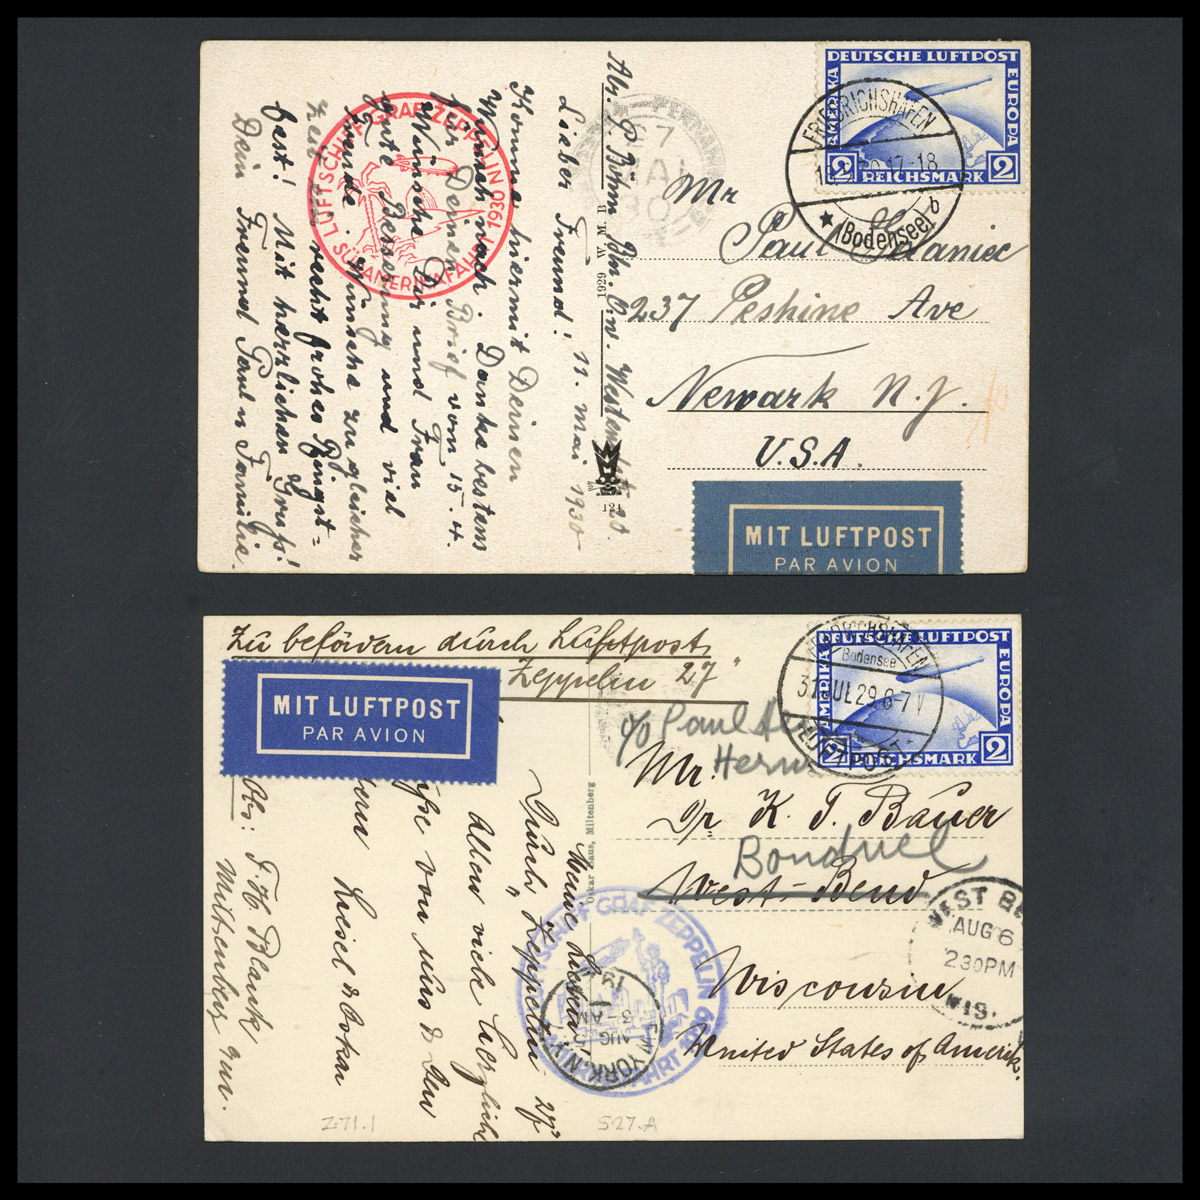 DEUTSCHE LUFTPOST
AMERIKA
EUROPA
2 REICHSMARK 2
FRIEDRICHSHAFEN
17-18
(Bodensee) b
LUFTSCHIFF GRAF ZEPPELIN
SÜDAMERIKAFAHRT 1930
PERNAMBUCO
MAI
Mr
Paul
237 Peshine Ave
Newark N.J.
U.S.A.
MIT LUFTPOST
PAR AVION
Abs. P. Böhm
1929 W. M. B.
121
11. Mai 1930
Lieber Freund!
Komme hiermit Deinen
Wunsch nach. Danke bestens
für Deinen Brief vom 15.4.
Wünsche Dir und Frau
gute Besserung und viel
Freude. Wünsche zu gleicher
Zeit recht frohes Pfingst=
fest! Mit herzlichen Gruss!
Dein Freund Paul u Familie.
Zu befördern durch Luftpost
Zeppelin 27"
MIT LUFTPOST
PAR AVION
DEUTSCHE LUFTPOST
AMERIKA
EUROPA
2 REICHSMARK 2
FRIEDRICHSHAFEN
Bodensee
31 JUL 29. 6-7 V
LUFTPOST
c/o Paul
Mr.
K. T. Bauer
Bonduel
West-Bend
Wisconsin
United States of Amerik.
WEST BE
AUG 6
230PM
WIS.
LUFTSCHIFF GRAF ZEPPELIN
AMERIKAFAHRT 1929
NEW YORK, N.Y.
AUG 5
3-AM
19
Oskar Haus, Miltenberg
Meine Lieben!
Durch "Zeppelin 27"
allen viele herzliche
von uns
Liesel & Oskar
Abs: F. H. Blank
Miltenberg
Z-71.1
S-27-A